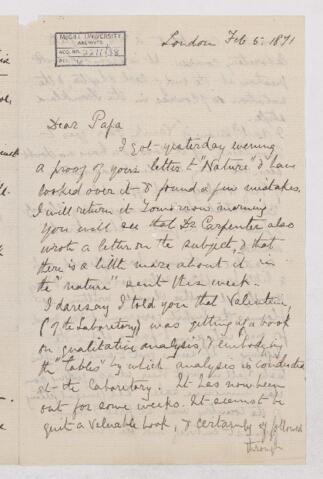 McGILL UNIVERSITY
ARCHIVES
ACC. NO.
REF.
London Feb 5. 1871
Dear Papa
I got yesterday evening
a proof of your letter to "Nature" & have
looked over it & found a few mistakes.
I will return it tomorrow morning
You will see that Dr Carpenter also
wrote a letter on the subject, & that
there is a little more about it in
the "nature" sent this week.
I daresay I told you that Valentin
(of the Laboratory) was getting up a book
on qualitative analysis, & embodying
the "tables" by which analysis is conducted
at the Laboratory. It has now been
out for some weeks. It seems to be
quite a valuable book, & certainly if followed
through